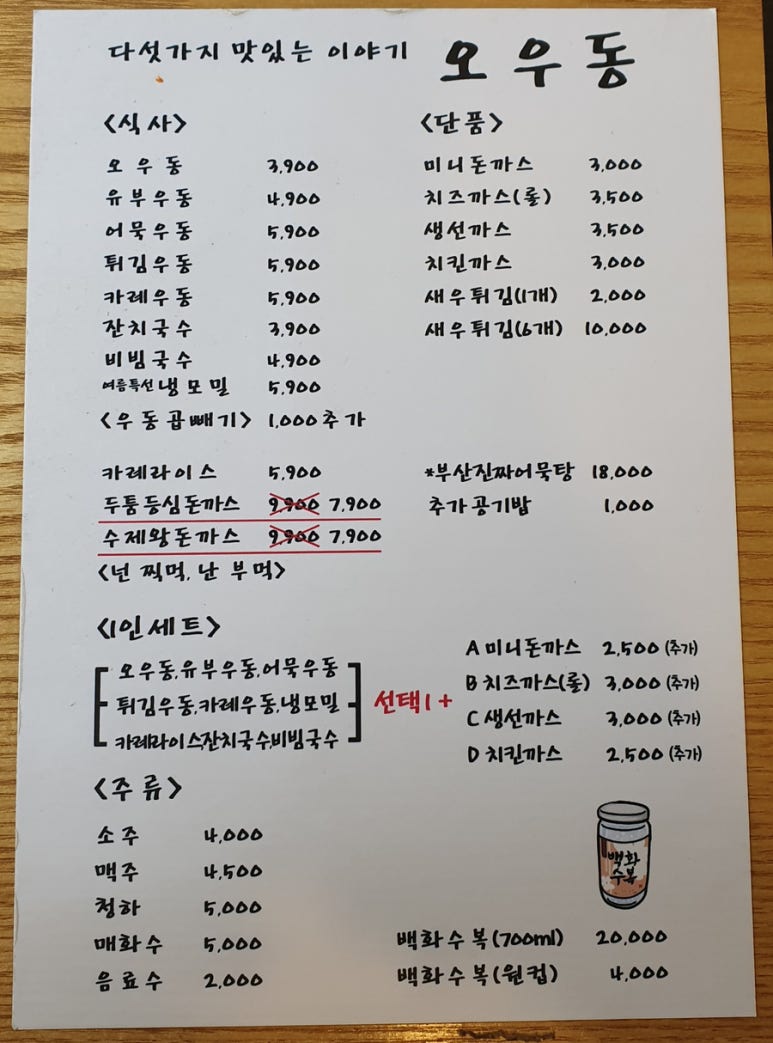 다섯가지 맛있는 이야기 오우동
<식사>
오우동 3,900
유부우동 4,900
어묵우동 5,900
튀김우동 5,900
카레우동 5,900
잔치국수 3,900
비빔국수 4,900
여름특선 냉모밀 5,900
<우동곱빼기> 1,000추가
카레라이스 5,900
두툼등심돈까스 9,900 7,900
수제왕돈까스 9,900 7,900
<넌 찍먹, 난 부먹>
<단품>
미니돈까스 3,000
치즈까스(롤) 3,500
생선까스 3,500
치킨까스 3,000
새우튀김(1개) 2,000
새우튀김(6개) 10,000
*부산진짜어묵탕 18,000
추가공기밥 1,000
<1인세트>
오우동,유부우동,어묵우동
튀김우동,카레우동,냉모밀
카레라이스,잔치국수,비빔국수
선택1+
A 미니돈까스 2,500 (추가)
B 치즈까스(롤) 3,000 (추가)
C 생선까스 3,000 (추가)
D 치킨까스 2,500 (추가)
<주류>
소주 4,000
맥주 4,500
청하 5,000
매화수 5,000
음료수 2,000
백화
수복
백화수복(700ml) 20,000
백화수복(원컵) 4,000